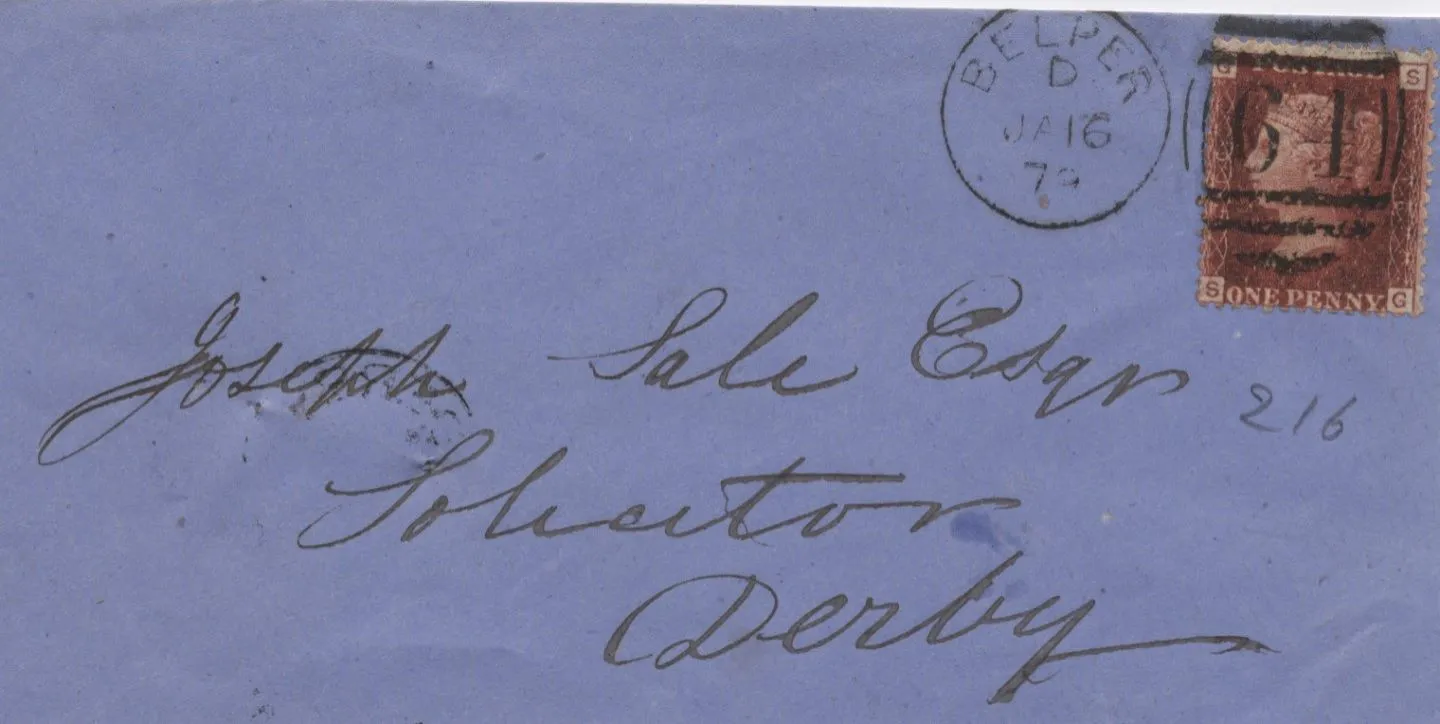 BELPER
D
JA 16
79
G S
61
S ONE PENNY G
Joseph Sale Esqr
216
Solicitor
Derby